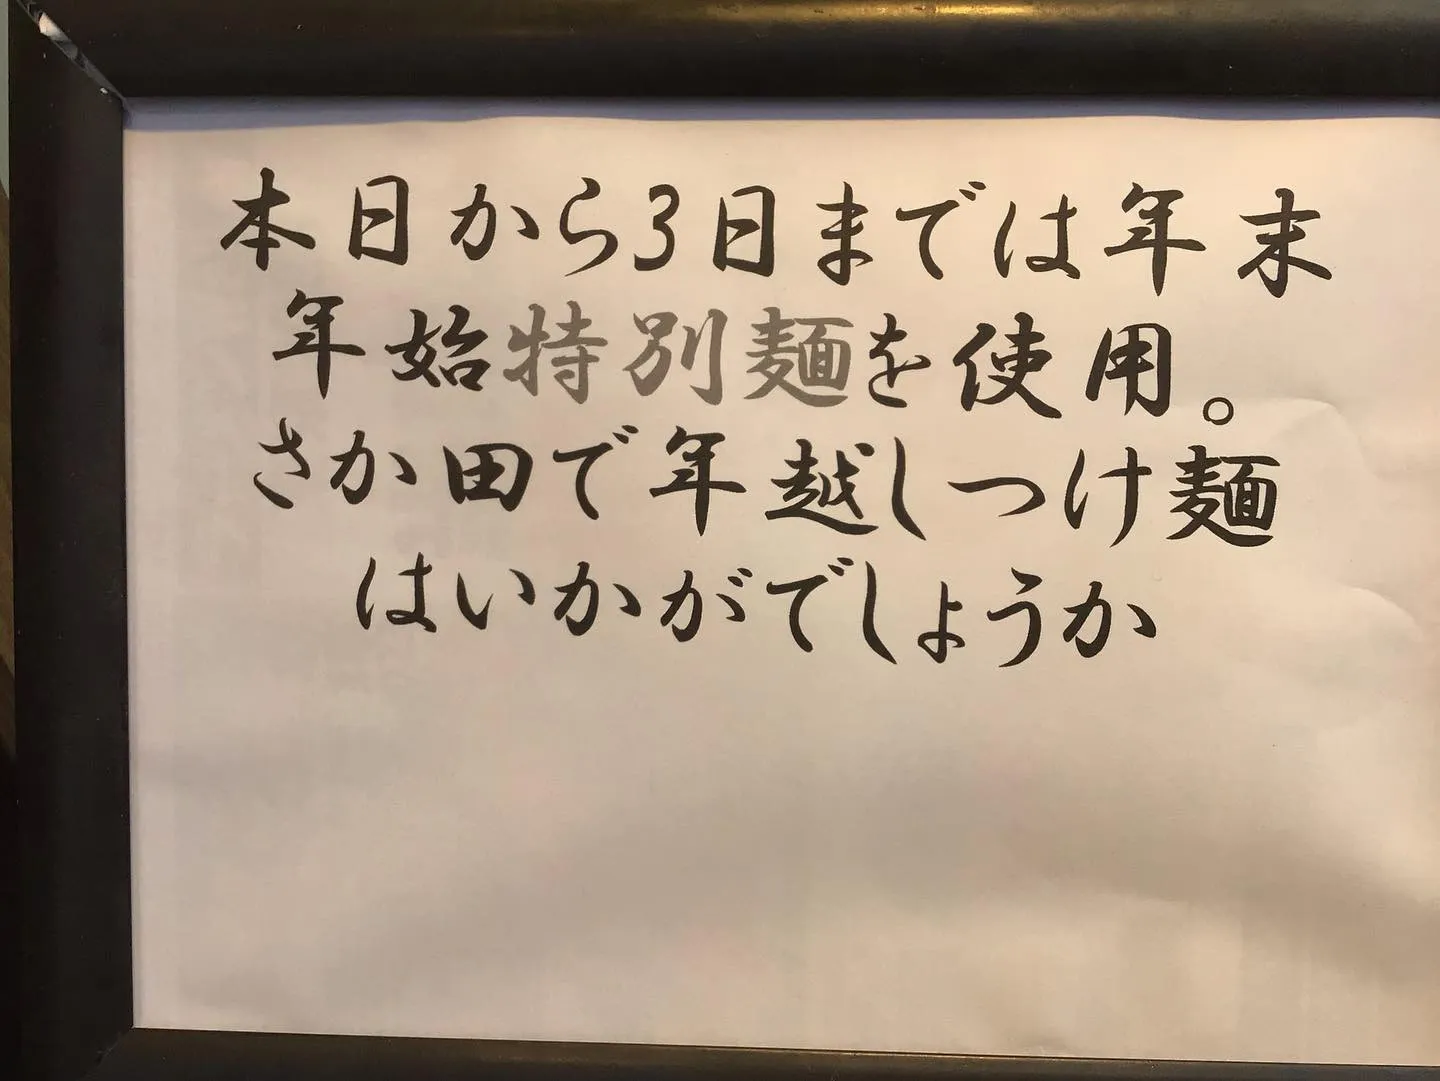 本日から3日までは年末
年始特別麺を使用。
さか田で年越しつけ麺
はいかがでしょうか